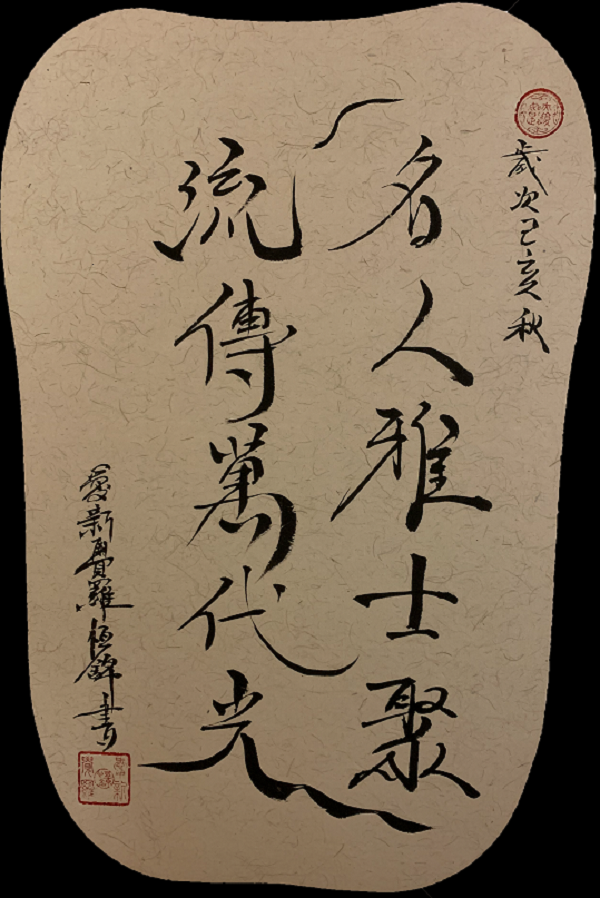 歲次己亥秋
名人雅士聚
流傳萬代光
愛新覺羅恒錦書